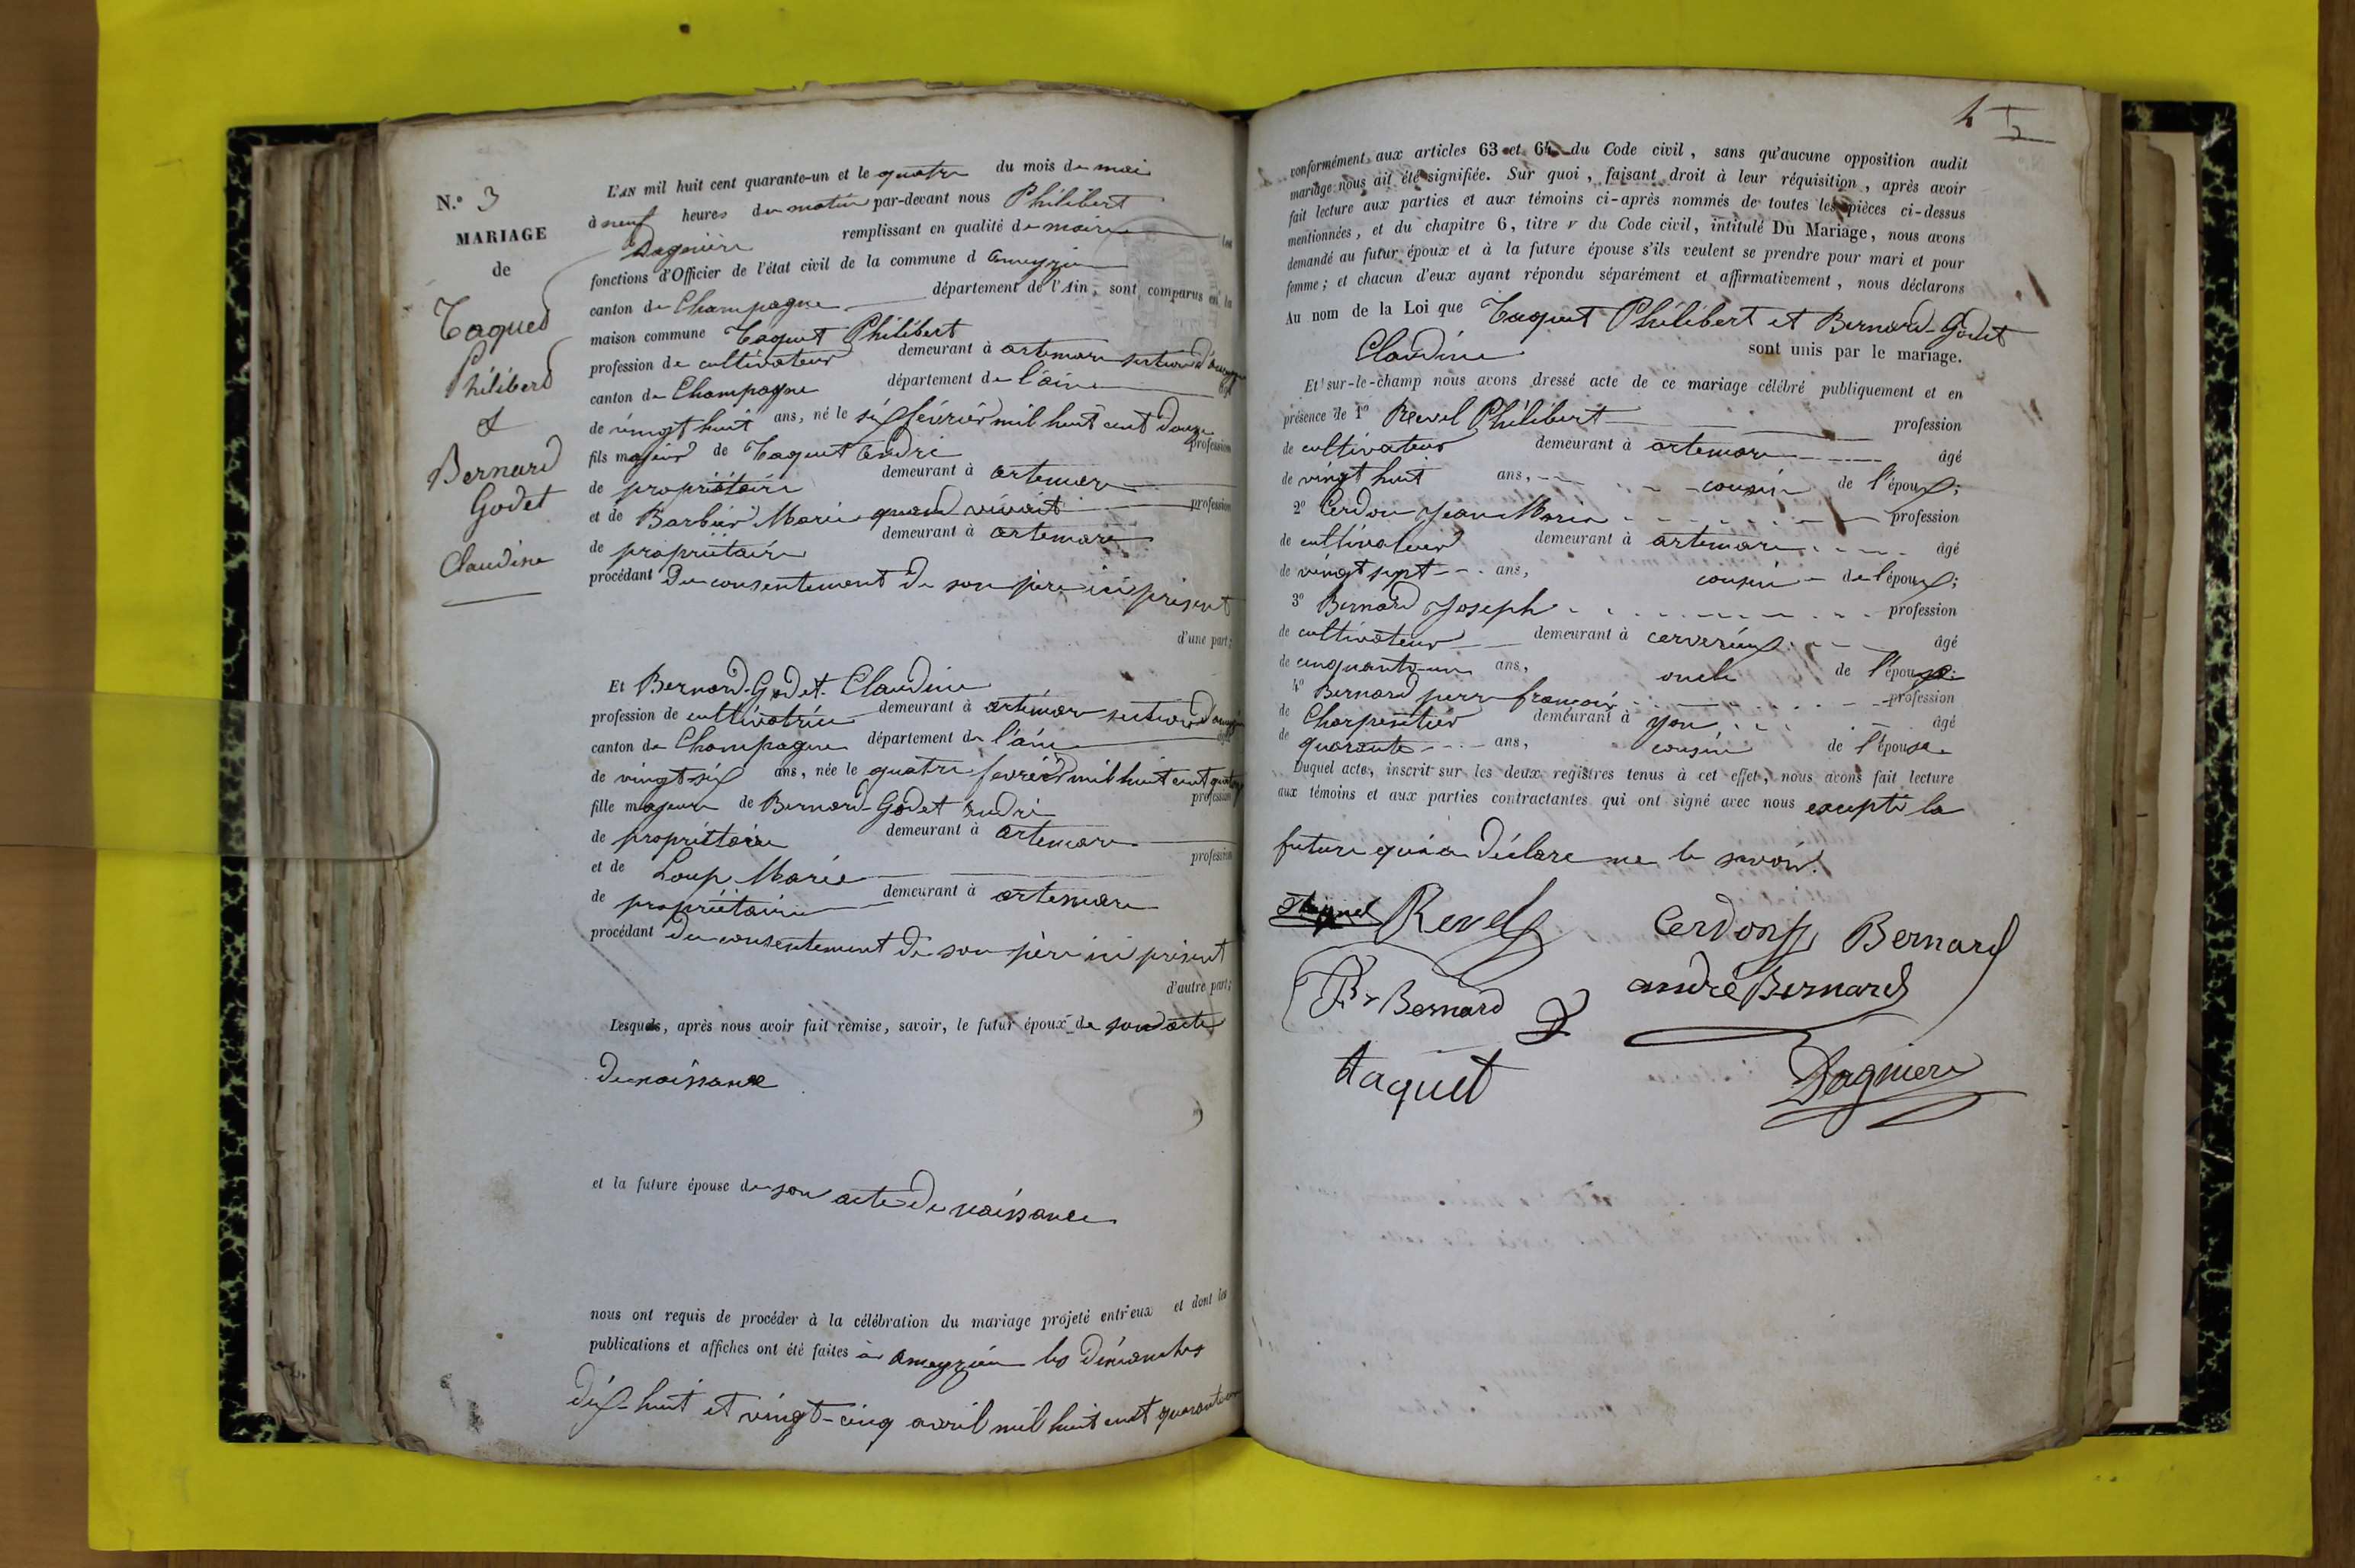 N.° 3
MARIAGE
de
Taquet
Philibert
&
Bernard
Godet
Claudine
L'AN mil huit cent quarante-un et le quatre du mois de mai
à neuf heures du matin par-devant nous Philibert
Dagnière remplissant en qualité de maire les
fonctions d'Officier de l'état civil de la commune d ameyzieu
canton de Champagne département de l'Ain, sont comparus en la
maison commune Taquet Philibert
profession de cultivateur demeurant à artemare section d'ameyzieu
canton de Champagne département de l'ain âgé
de vingt huit ans, né le six février mil huit cent douze
fils majeur de Taquet André profession
de propriétaire demeurant à artemare
et de Barbier Marie quand vivait profession
de propriétaire demeurant à artemare
procédant du consentement de son père ici présent
d'une part;
Et Bernard-Godet Claudine
profession de cultivatrice demeurant à artemare section d'ameyzieu
canton de Champagne département de l'ain âgée
de vingt-six ans, née le quatre fevrier mil huit cent quatorze
fille majeure de Bernard-Godet André profession
de propriétaire demeurant à artemare
et de Loup Marie profession
de propriétaire demeurant à artemare
procédant du consentement de son père ici présent
d'autre part;
Lesquels, après nous avoir fait remise, savoir, le futur époux de son acte
de naissance
et la future épouse de son acte de naissance
nous ont requis de procéder à la célébration du mariage projeté entr'eux et dont les
publications et affiches ont été faites à ameyzieu les dimanches
dix-huit et vingt-cinq avril mil huit cent quarante un
conformément aux articles 63 et 64 du Code civil, sans qu'aucune opposition audit
mariage nous ait été signifiée. Sur quoi, faisant droit à leur réquisition, après avoir
fait lecture aux parties et aux témoins ci-après nommés de toutes les pièces ci-dessus
mentionnées, et du chapitre 6, titre v du Code civil, intitulé Du Mariage, nous avons
demandé au futur époux et à la future épouse s'ils veulent se prendre pour mari et pour
femme; et chacun d'eux ayant répondu séparément et affirmativement, nous déclarons
Au nom de la Loi que Taquet Philibert et Bernard-Godet
Claudine sont unis par le mariage.
Et sur-le-champ nous avons dressé acte de ce mariage célébré publiquement et en
présence de 1° Revel Philibert profession
de cultivateur demeurant à artemare âgé
de vingt huit ans, cousin de l'époux;
2° Cerdon Jean Marie profession
de cultivateur demeurant à artemare âgé
de vingt sept ans, cousin de l'époux;
3° Bernard Joseph profession
de cultivateur demeurant à cerveyrieux âgé
de cinquante-un ans, oncle de l'épouse.
4° Bernard pierre françois profession
de Charpentier demeurant à yon âgé
de quarante ans, cousin de l'épouse
Duquel acte, inscrit sur les deux registres tenus à cet effet, nous avons fait lecture
aux témoins et aux parties contractantes qui ont signé avec nous excepté la
future qui a déclaré ne le savoir.
Revel Cerdon Bernard
Bernard andré Bernard
taquet Dagniere